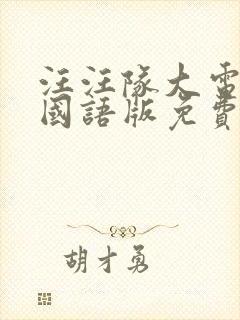 汪汪隊大電
國語版免費
胡才勇